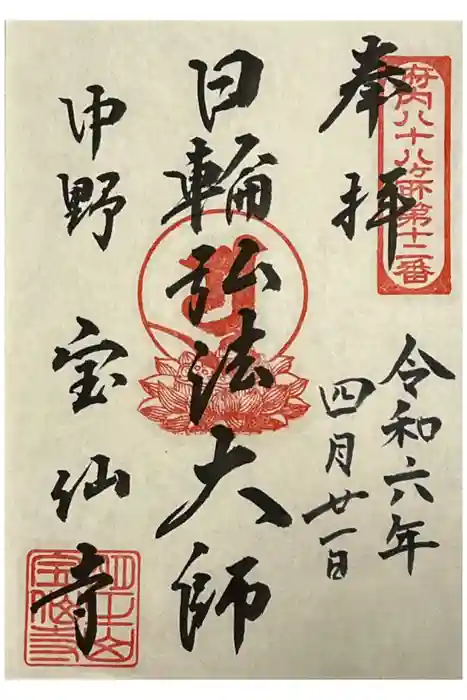 府内八十八ヶ所第十二番
奉拝
令和六年
四月廿一日
日輪弘法大師
中野 宝仙寺